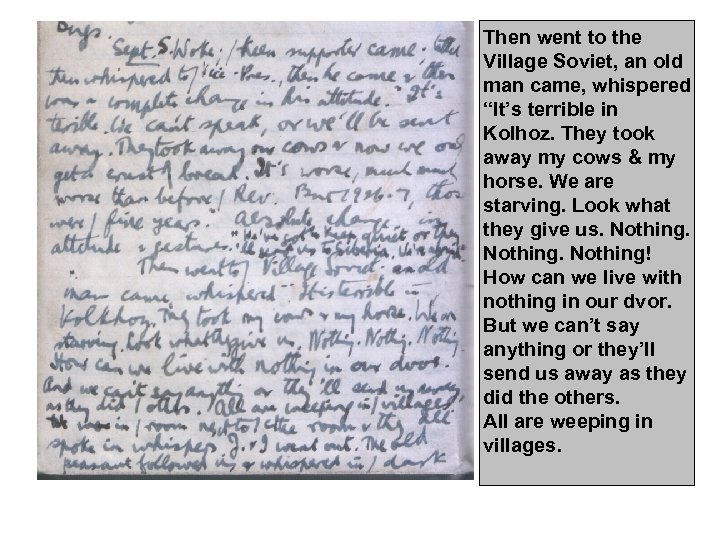 Bugs.
Sept. 5. Woke. / Keen supporter came. Later
then whispered to / Vice-Pres., then he came & there
was a complete change in his attitude. "It's
terrible. We can't speak, or we'll be sent
away. They took away our cows & now we only
get a crust of bread. It's worse, much much
worse than before / Rev. But 1926-7, those
were / fine years." Absolute change in
attitude & gestures. "We've got to keep quiet or they
'll send us to Siberia.
Then went to / Village Soviet. an old
man came, whispered "It is terrible in
Kolkhoz. They took my cows & my horse. We are
starving. Look what they give us, Nothing. Nothing. Nothing
How can we live with nothing in our dvor.
And we can't say anything or they'll send us away
as they did / others. All are weeping in / villages.
We were in / room next to / the room & they all
spoke in whispers. J. & I went out. The old
peasant followed us & whispered in / dark
Then went to the
Village Soviet, an old
man came, whispered
“It’s terrible in
Kolhoz. They took
away my cows & my
horse. We are
starving. Look what
they give us. Nothing.
Nothing. Nothing!
How can we live with
nothing in our dvor.
But we can’t say
anything or they’ll
send us away as they
did the others.
All are weeping in
villages.